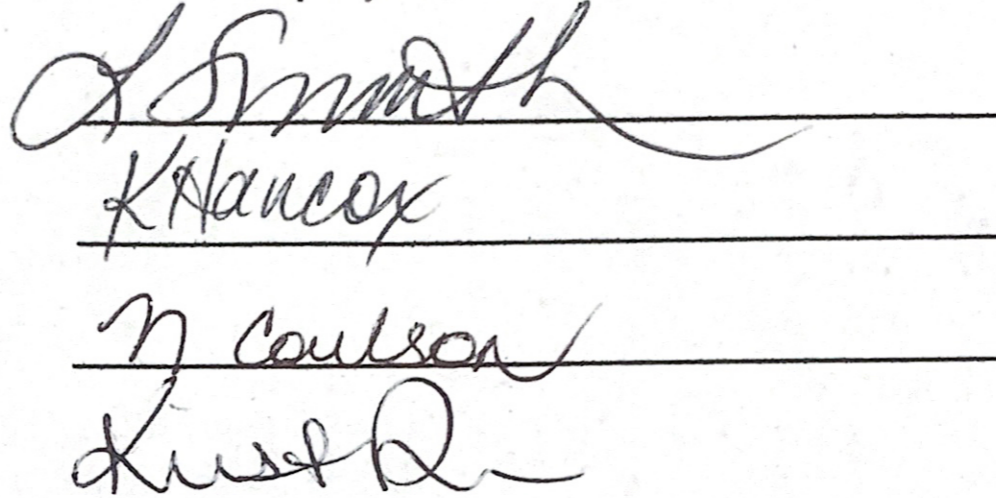 L Smith
K Hancox
N Coulson